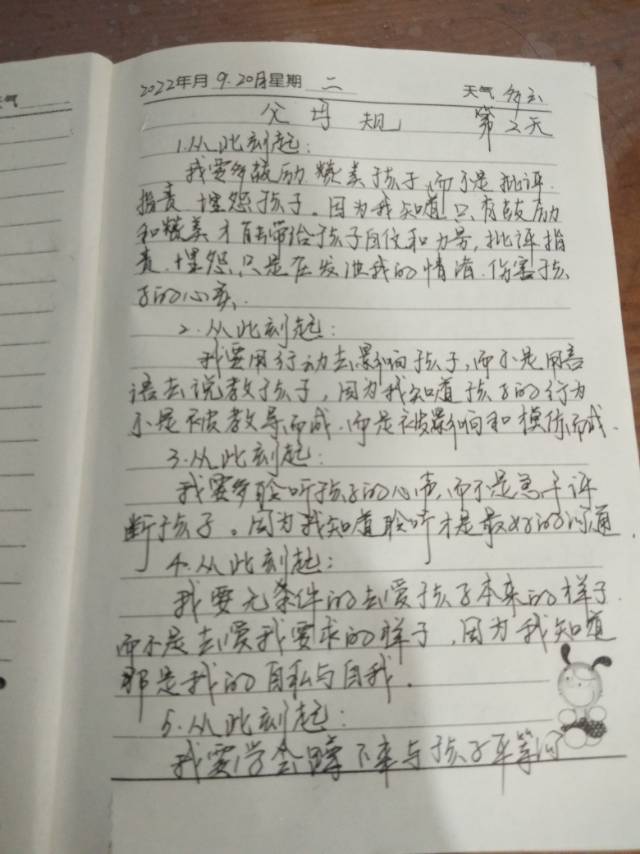 天气
2022年月 9.20日星期 二 天气 多云
父母规 第2天
1.从此刻起:
我要多鼓励赞美孩子,而不是批评.
指责 埋怨孩子。因为我知道只有鼓励
和赞美才能带给孩子自信和力量,批评指
责.埋怨只是在发泄我的情绪.伤害孩
子的心灵.
2.从此刻起:
我要用行动去影响孩子,而不是用言
语去说教孩子,因为我知道孩子的行为
不是被教导而成.而是被影响和模仿而成.
3.从此刻起:
我要多聆听孩子的心声,而不是急于评
断孩子。因为我知道聆听才是最好的沟通.
4.从此刻起:
我要无条件的去爱孩子本来的样子.
而不是去爱我要求的样子,因为我知道
那是我的自私与自我.
5.从此刻起:
我要学会蹲下来与孩子平等沟